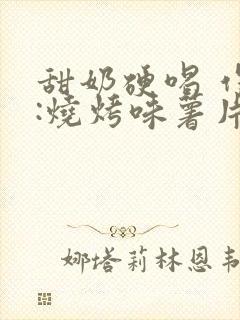 甜奶硬唱
:燒烤味薯片
娜塔莉林恩韦